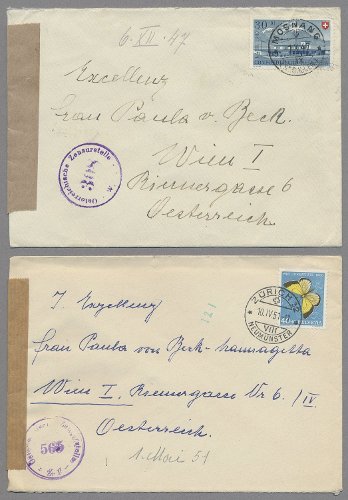 6. XII. 47
30
MOSNANG
Excellenz
Frau Paula v. Beck.
Wien I
Riemergasse 6
Oesterreich
Österreichische Zensurstelle
ZÜRICH
10.IV.51
VIII
NEUMÜNSTER
40
121
I. Exzellenz
Frau Paula von Beck-Mannagetta
Wien I. Riemergasse Nr 6/IV
Oesterreich.
1. Mai 51
565